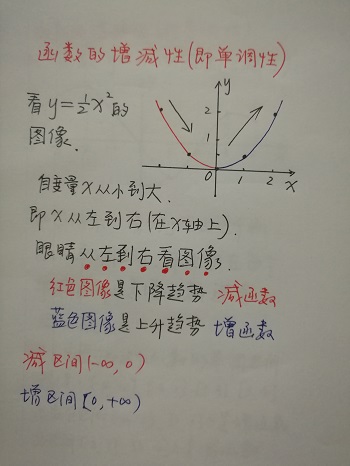 函数的增减性(即单调性)
看y=½x²的
图像.
y
2
1
0 1 2 x
自变量X从小到大.
即X从左到右(在X轴上).
眼睛从左到右看图像.
红色图像是下降趋势 减函数
蓝色图像是上升趋势 增函数
减区间(-∞,0)
增区间[0,+∞)